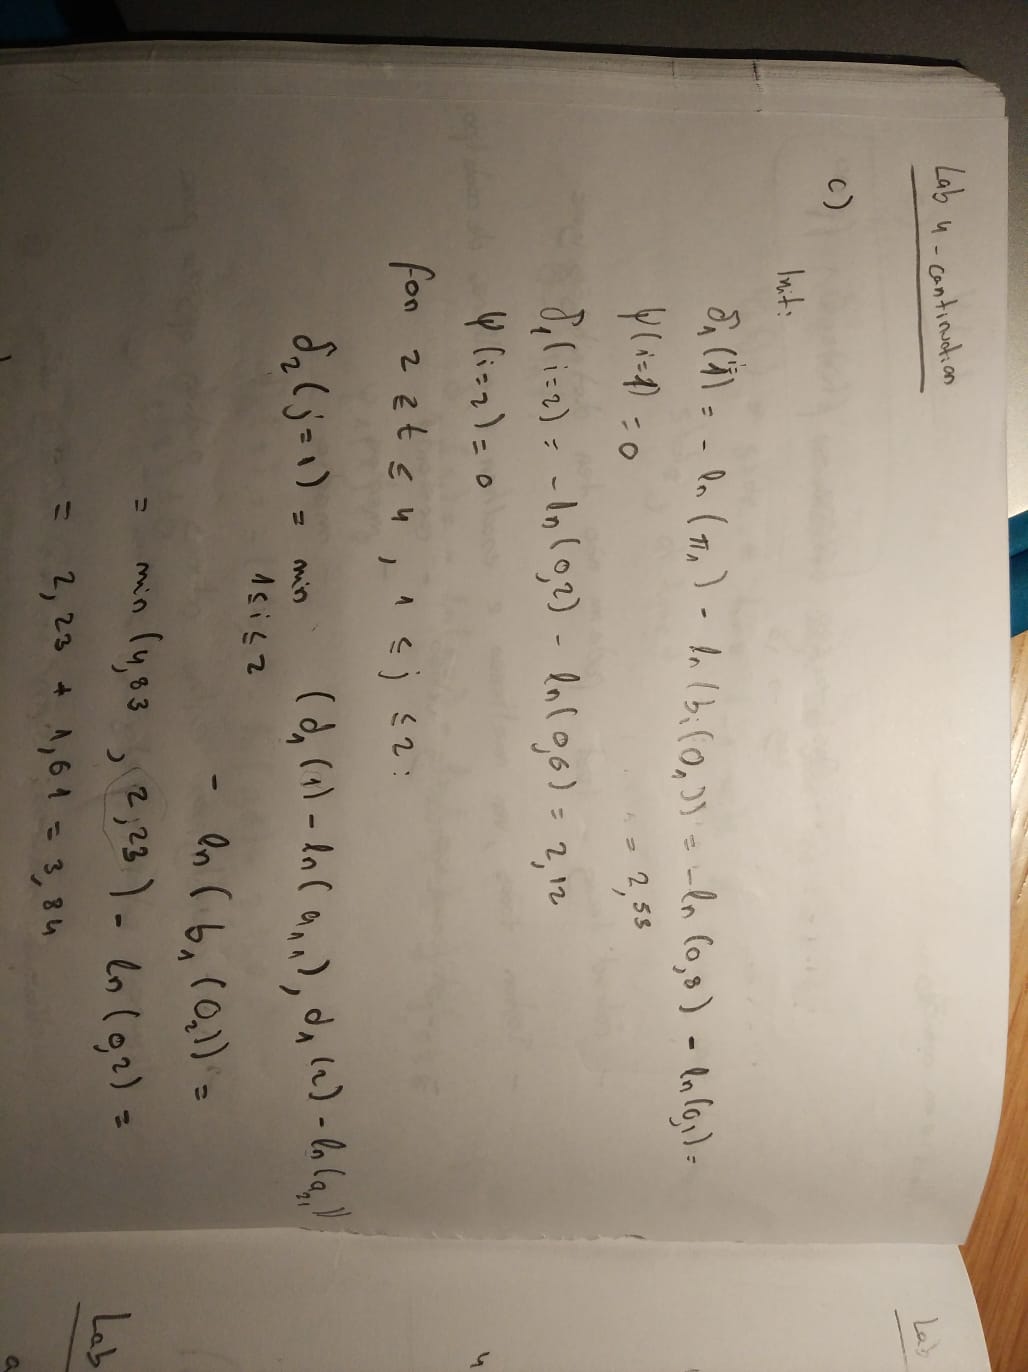 Lab 4 - cantinuation
c)
Init:
δ₁(i=1) = - ln(π₁) - ln(bᵢ(O₁)) = - ln(0,8) - ln(0,1) =
= 2,53
ψ(i=1) = 0
δ₁(i=2) = - ln(0,2) - ln(0,6) = 2,12
ψ(i=2) = 0
for 2 ≤ t ≤ 4, 1 ≤ j ≤ 2:
δ₂(j=1) = min (d₁(1) - ln(a₁₁), d₁(2) - ln(a₂₁))
1≤i≤2
- ln(b₁(O₂)) =
= min(4,83, 2,23) - ln(0,2) =
= 2,23 + 1,61 = 3,84
Lab
Lab
4
a